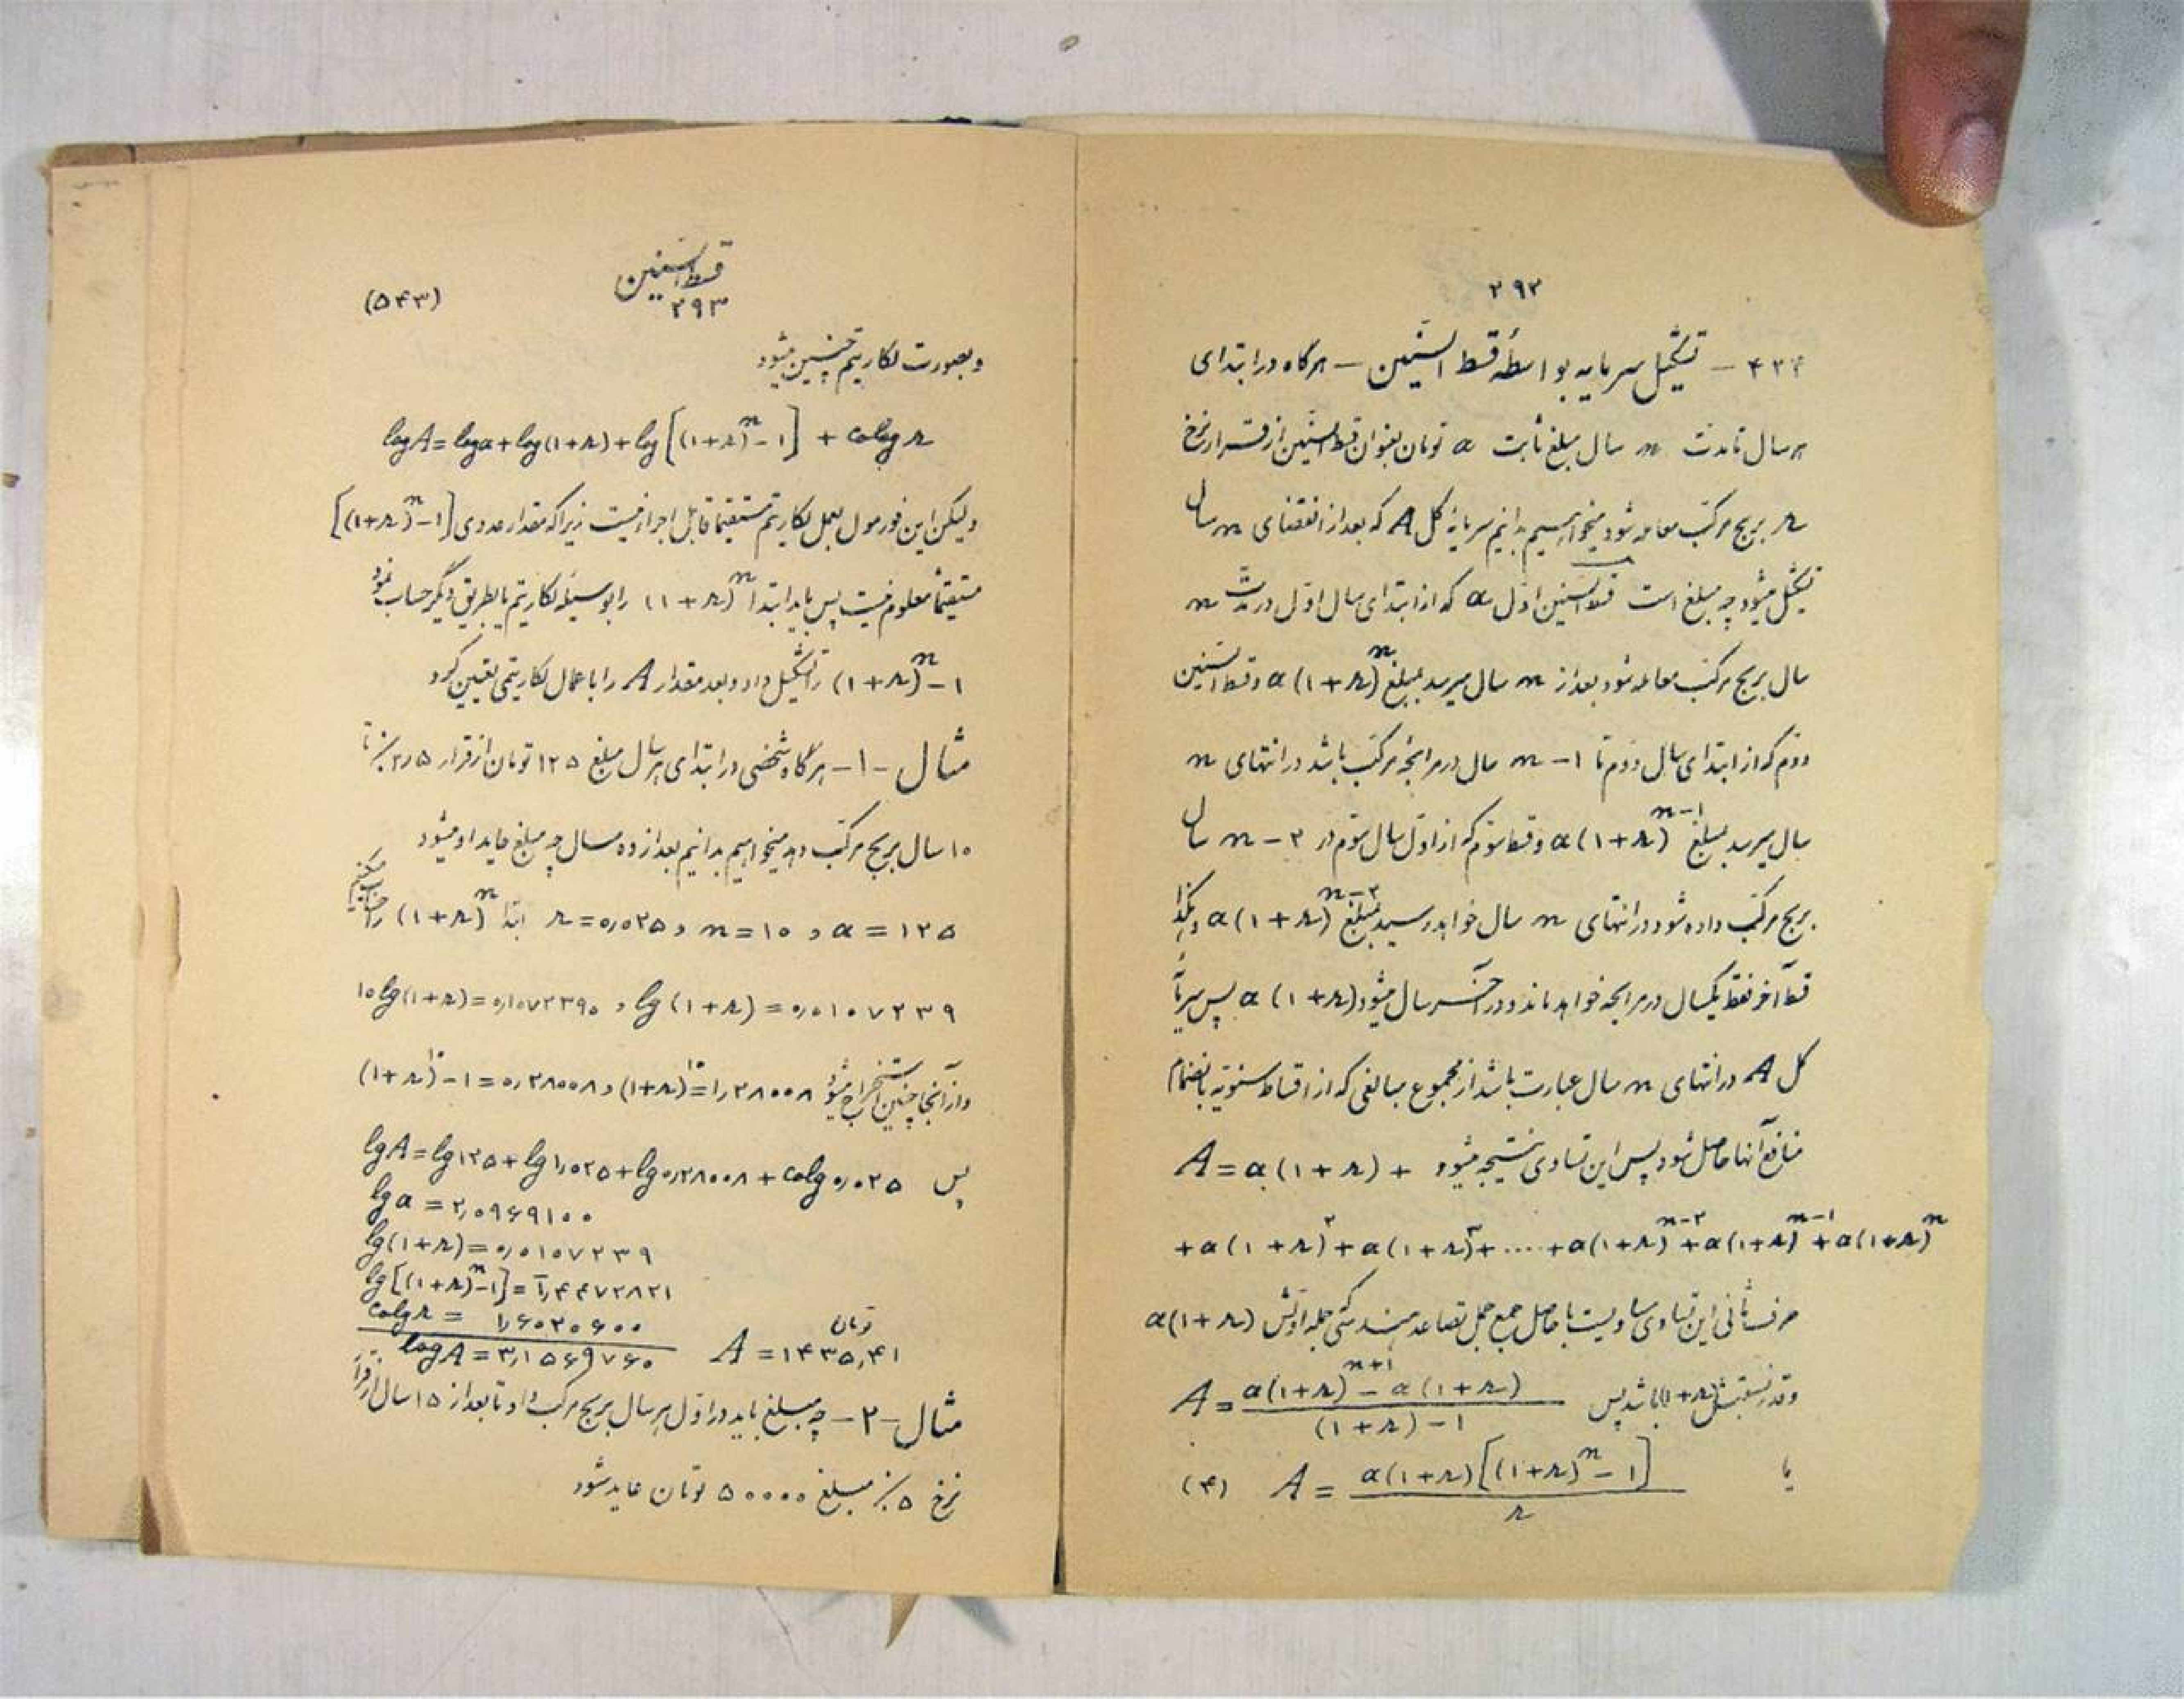 ۲۹۲
۴۳۴ – تشکیل سرمایه بواسطهٔ قسط السّنین – هرگاه در ابتدای
هر سال تا مدت n سال مبلغ ثابت a تومان بعنوان قسط السنین از قرار نرخ
r بربح مرکب معامله شود میخواهیم بدانیم سرمایهٔ کل A که بعد از انقضای n سال
تشکیل میشود چه مبلغ است قسط السنین اول a که از ابتدای سال اول در مدت n
سال بربح مرکب معامله شود بعد از n سال میرسد بمبلغ a(1+r)^n و قسط السنین
دوم که از ابتدای سال دوم تا n-۱ سال در مرابحه مرکب باشد در انتهای n
سال میرسد بمبلغ a(1+r)^{n-1} و قسط سوم که از اول سال سوم در n-۲ سال
بربح مرکب داده شود در انتهای n سال خواهد رسید بمبلغ a(1+r)^{n-۲} و هکذا
قسط آخر فقط یکسال در مرابحه خواهد ماند و در آخر سال میشود a(1+r) پس سرمایهٔ
کل A در انتهای n سال عبارت باشد از مجموع مبالغی که از اقساط سنویه بانضمام
منافع آنها حاصل شود پس این تساوی نتیجه میشود A=a(1+r)+
+a(1+r)^۲+a(1+r)^۳+....+a(1+r)^{n-۲}+a(1+r)^{n-1}+a(1+r)^n
طرف ثانی این تساوی مساویست با حاصل جمع جمل تصاعد هندسی که جمله اولش a(1+r)
و قدر نسبتش (1+r) باشد پس A = a(1+r)^{n+1} - a(1+r) / (1+r)-1
یا A = a(1+r)[(1+r)^n-1] / r (۴)
قسط السنین
۲۹۳ (۵۴۳)
و بصورت لگاریتم چنین میشود
log A = log a + log(1+r) + log[(1+r)^n-1] + colog r
ولیکن این فورمول بعمل لگاریتم مستقیماً قابل اجرا نیست زیرا که مقدار عددی [(1+r)^n-1]
مستقیماً معلوم نیست پس باید ابتدا (1+r)^n را بوسیله لگاریتم یا بطریق دیگر حساب نمود
(1+r)^n-1 را تشکیل داد و بعد مقدار A را باعمال لگاریتمی تعیین کرد
مثال -۱- هرگاه شخصی در ابتدای هر سال مبلغ ۱۲۵ تومان از قرار ۲٫۵٪ تا
۱۰ سال بربح مرکب دهد میخواهیم بدانیم بعد از ده سال چه مبلغ عاید او میشود
a=۱۲۵ و n=۱۰ و r=۰٫۰۲۵ ابتدا (1+r)^n را حساب میکنیم
lg(1+r)=۰٫۰۱۰۷۲۳۹ و ۱۰lg(1+r)=۰٫۱۰۷۲۳۹۰
و از آنجا چنین استخراج میشود (1+r)^۱۰=۱٫۲۸۰۰۸ و (1+r)^۱۰-۱=۰٫۲۸۰۰۸
پس lgA=lg۱۲۵+lg۱٫۰۲۵+lg۰٫۲۸۰۰۸+colg۰٫۰۲۵
lga=۲٫۰۹۶۹۱۰۰
lg(1+r)=۰٫۰۱۰۷۲۳۹
lg[(1+r)^n-1]=‾۱٫۴۴۷۲۸۲۱
colgr=۱٫۶۰۲۰۶۰۰
logA=۳٫۱۵۶۹۷۶۰ A=۱۴۳۵٫۴۱ تومان
مثال -۲- چه مبلغ باید در اول هر سال بربح مرکب داد تا بعد از ۱۵ سال از قرار
نرخ ۵٪ مبلغ ۵۰۰۰۰ تومان عاید شود